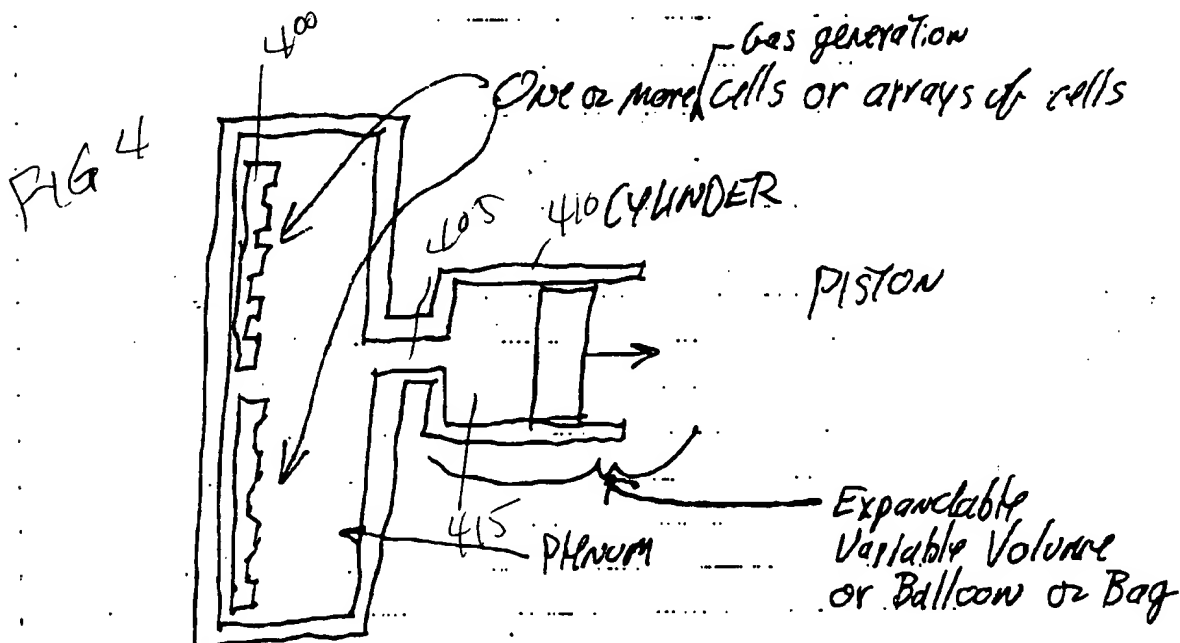 Gas generation
400
One or more cells or arrays of cells
FIG 4
410 CYLINDER
405
PISTON
415
Plenum
Expandable
Variable Volume
or Balloon or Bag